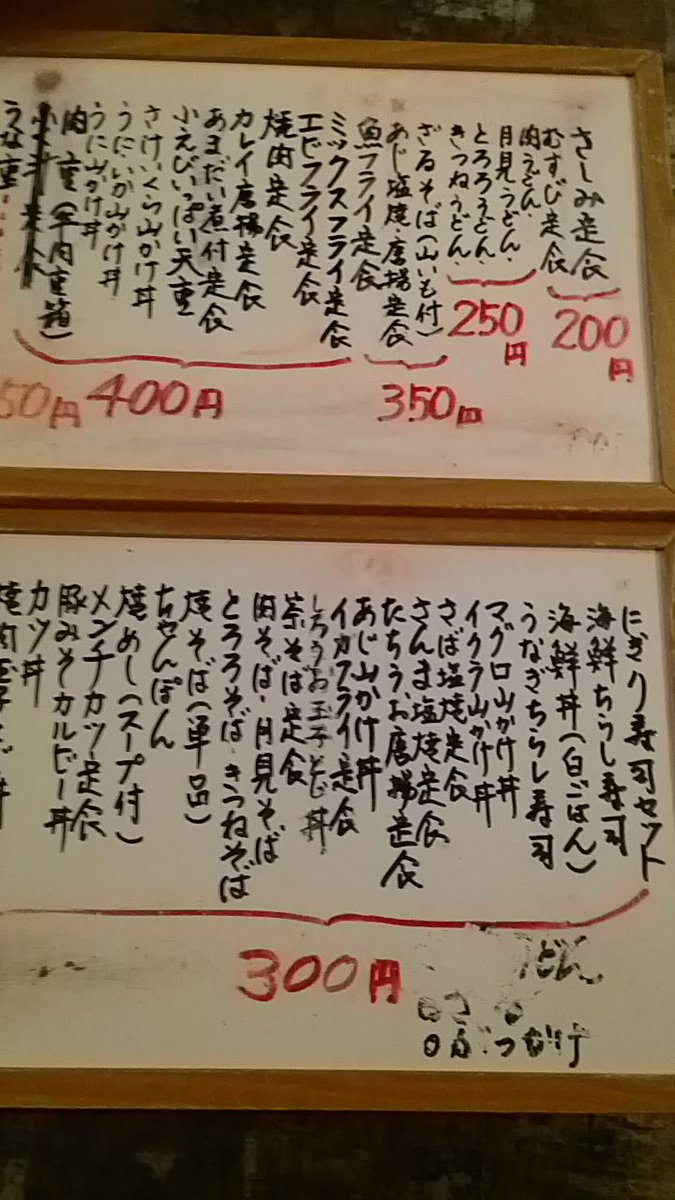 さしみ定食
むすび定食
200円
肉うどん・
月見うどん・
とろろうどん・
きつねうどん・
250円
ざるそば(山いも付)
あじ塩焼・唐揚定食
魚フライ定食
350円
ミックスフライ定食
エビフライ定食
焼肉定食
カレイ唐揚定食
あまだい煮付定食
小えびいっぱい天重
さけいくら山かけ丼
うに・いか山かけ丼
うに山かけ丼
肉重(牛肉重箱)
うな重
400円
50円
にぎり寿司セット
海鮮ちらし寿司
海鮮丼(白ごはん)
うなぎちらし寿司
マグロ山かけ丼
イクラ山かけ丼
さば塩焼定食
さんま塩焼定食
たちうお唐揚定食
あじ山かけ丼
イカフライ定食
しらうお玉子とじ丼
茶そば定食
肉そば・月見そば
とろろそば・きつねそば
焼そば(単品)
ちゃんぽん
焼めし(スープ付)
メンチカツ定食
豚みそカルビー丼
カツ丼
300円